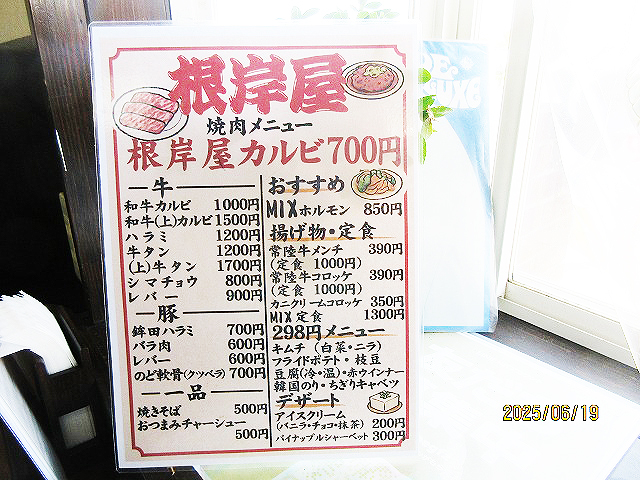 根岸屋
焼肉メニュー
根岸屋カルビ700円
牛
和牛カルビ 1000円
和牛(上)カルビ 1500円
ハラミ 1200円
牛タン 1200円
(上)牛タン 1700円
シマチョウ 800円
レバー 900円
豚
鉾田ハラミ 700円
バラ肉 600円
レバー 600円
のど軟骨(クツベラ) 700円
一品
焼きそば 500円
おつまみチャーシュー
500円
おすすめ
MIXホルモン 850円
揚げ物・定食
常陸牛メンチ 390円
(定食 1000円)
常陸牛コロッケ 390円
(定食 1000円)
カニクリームコロッケ 350円
MIX定食 1300円
298円メニュー
キムチ(白菜・ニラ)
フライドポテト・枝豆
豆腐(冷・温)・赤ウインナー
韓国のり・ちぎりキャベツ
デザート
アイスクリーム
(バニラ・チョコ・抹茶) 200円
パイナップルシャーベット 300円
2025/06/19